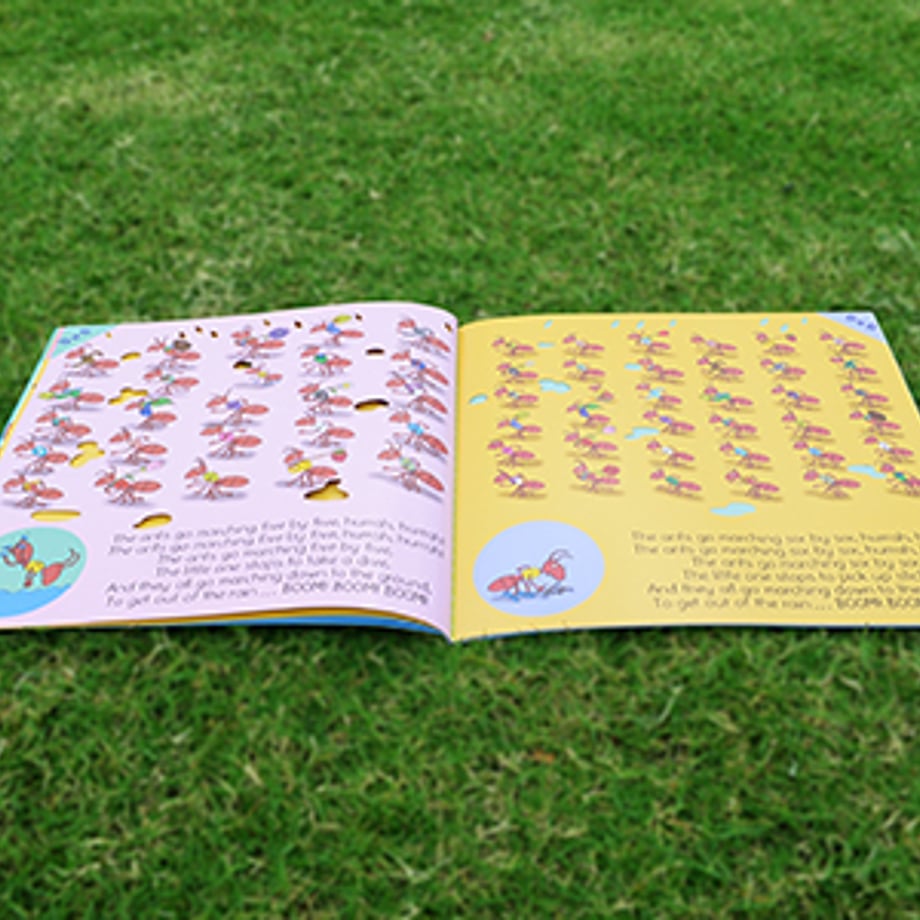 The ants go marching five by five, hurrah, hurrah!
The ants go marching five by five, hurrah, hurrah!
The ants go marching five by five,
The little one stops to take a dive,
And they all go marching down to the ground,
To get out of the rain ... BOOM! BOOM! BOOM!
The ants go marching six by six, hurrah,
The ants go marching six by six, hurrah,
The ants go marching six by
The little one stops to pick up
And they all go marching down to
To get out of the rain ... BOOM!